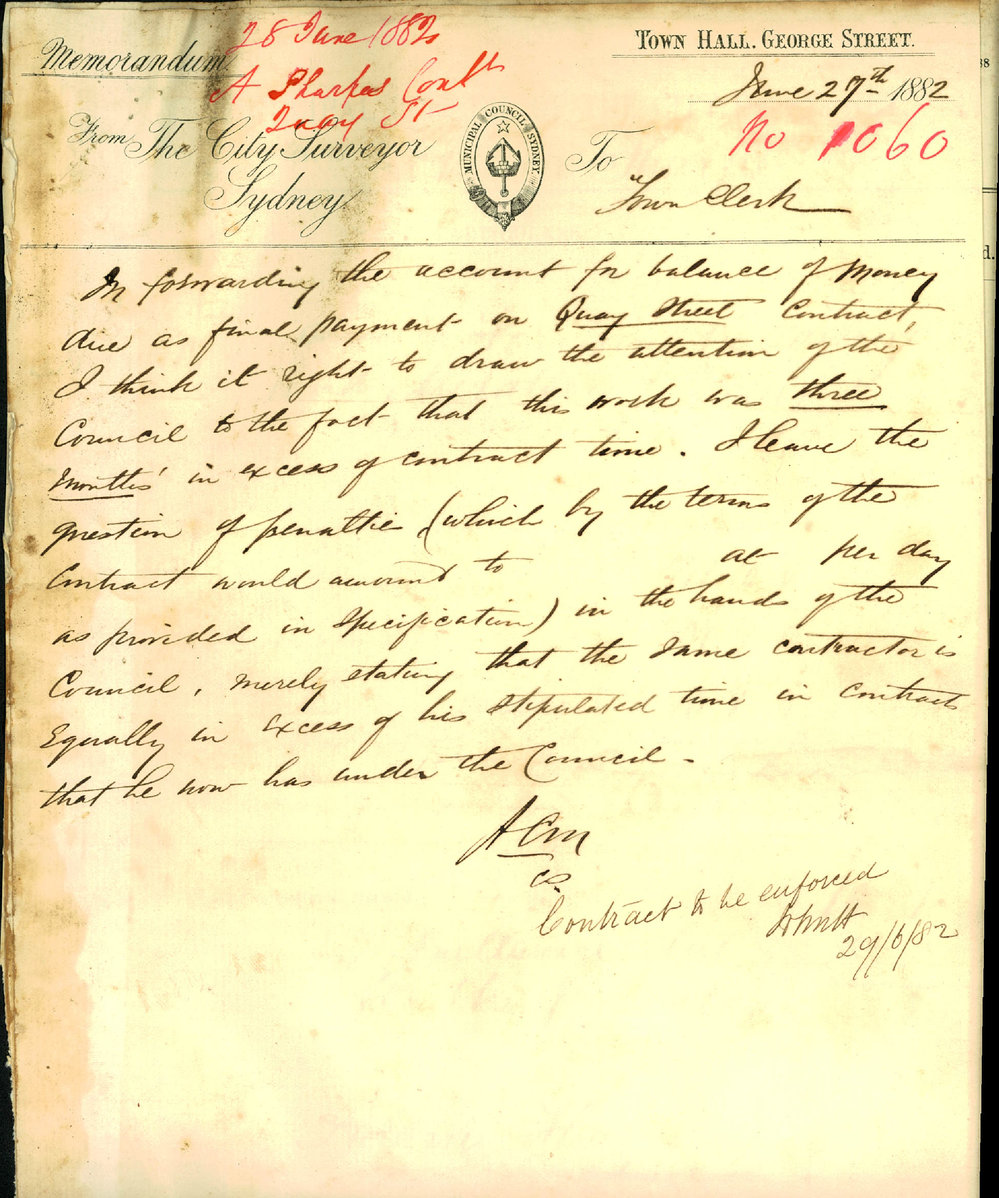 28 June 1882
A Sharpes Cont
Quay St
Memorandum
TOWN HALL. GEORGE STREET.
June 27th 1882
No 1060
From The City Surveyor
Sydney
MUNICIPAL COUNCIL SYDNEY
To
Town Clerk
In forwarding the account for balance of Money
due as final payment on Quay Street Contract,
I think it right to draw the attention of the
Council to the fact that this work was three
Months' in excess of contract time. I leave the
question of penaltie (which by the terms of the
Contract would amount to at per day
as provided in Specification) in the hands of the
Council, merely stating that the same contractor is
Equally in excess of his stipulated time in Contract
that he now has under the Council -
ACM
CS
Contract to be enforced
29/6/82